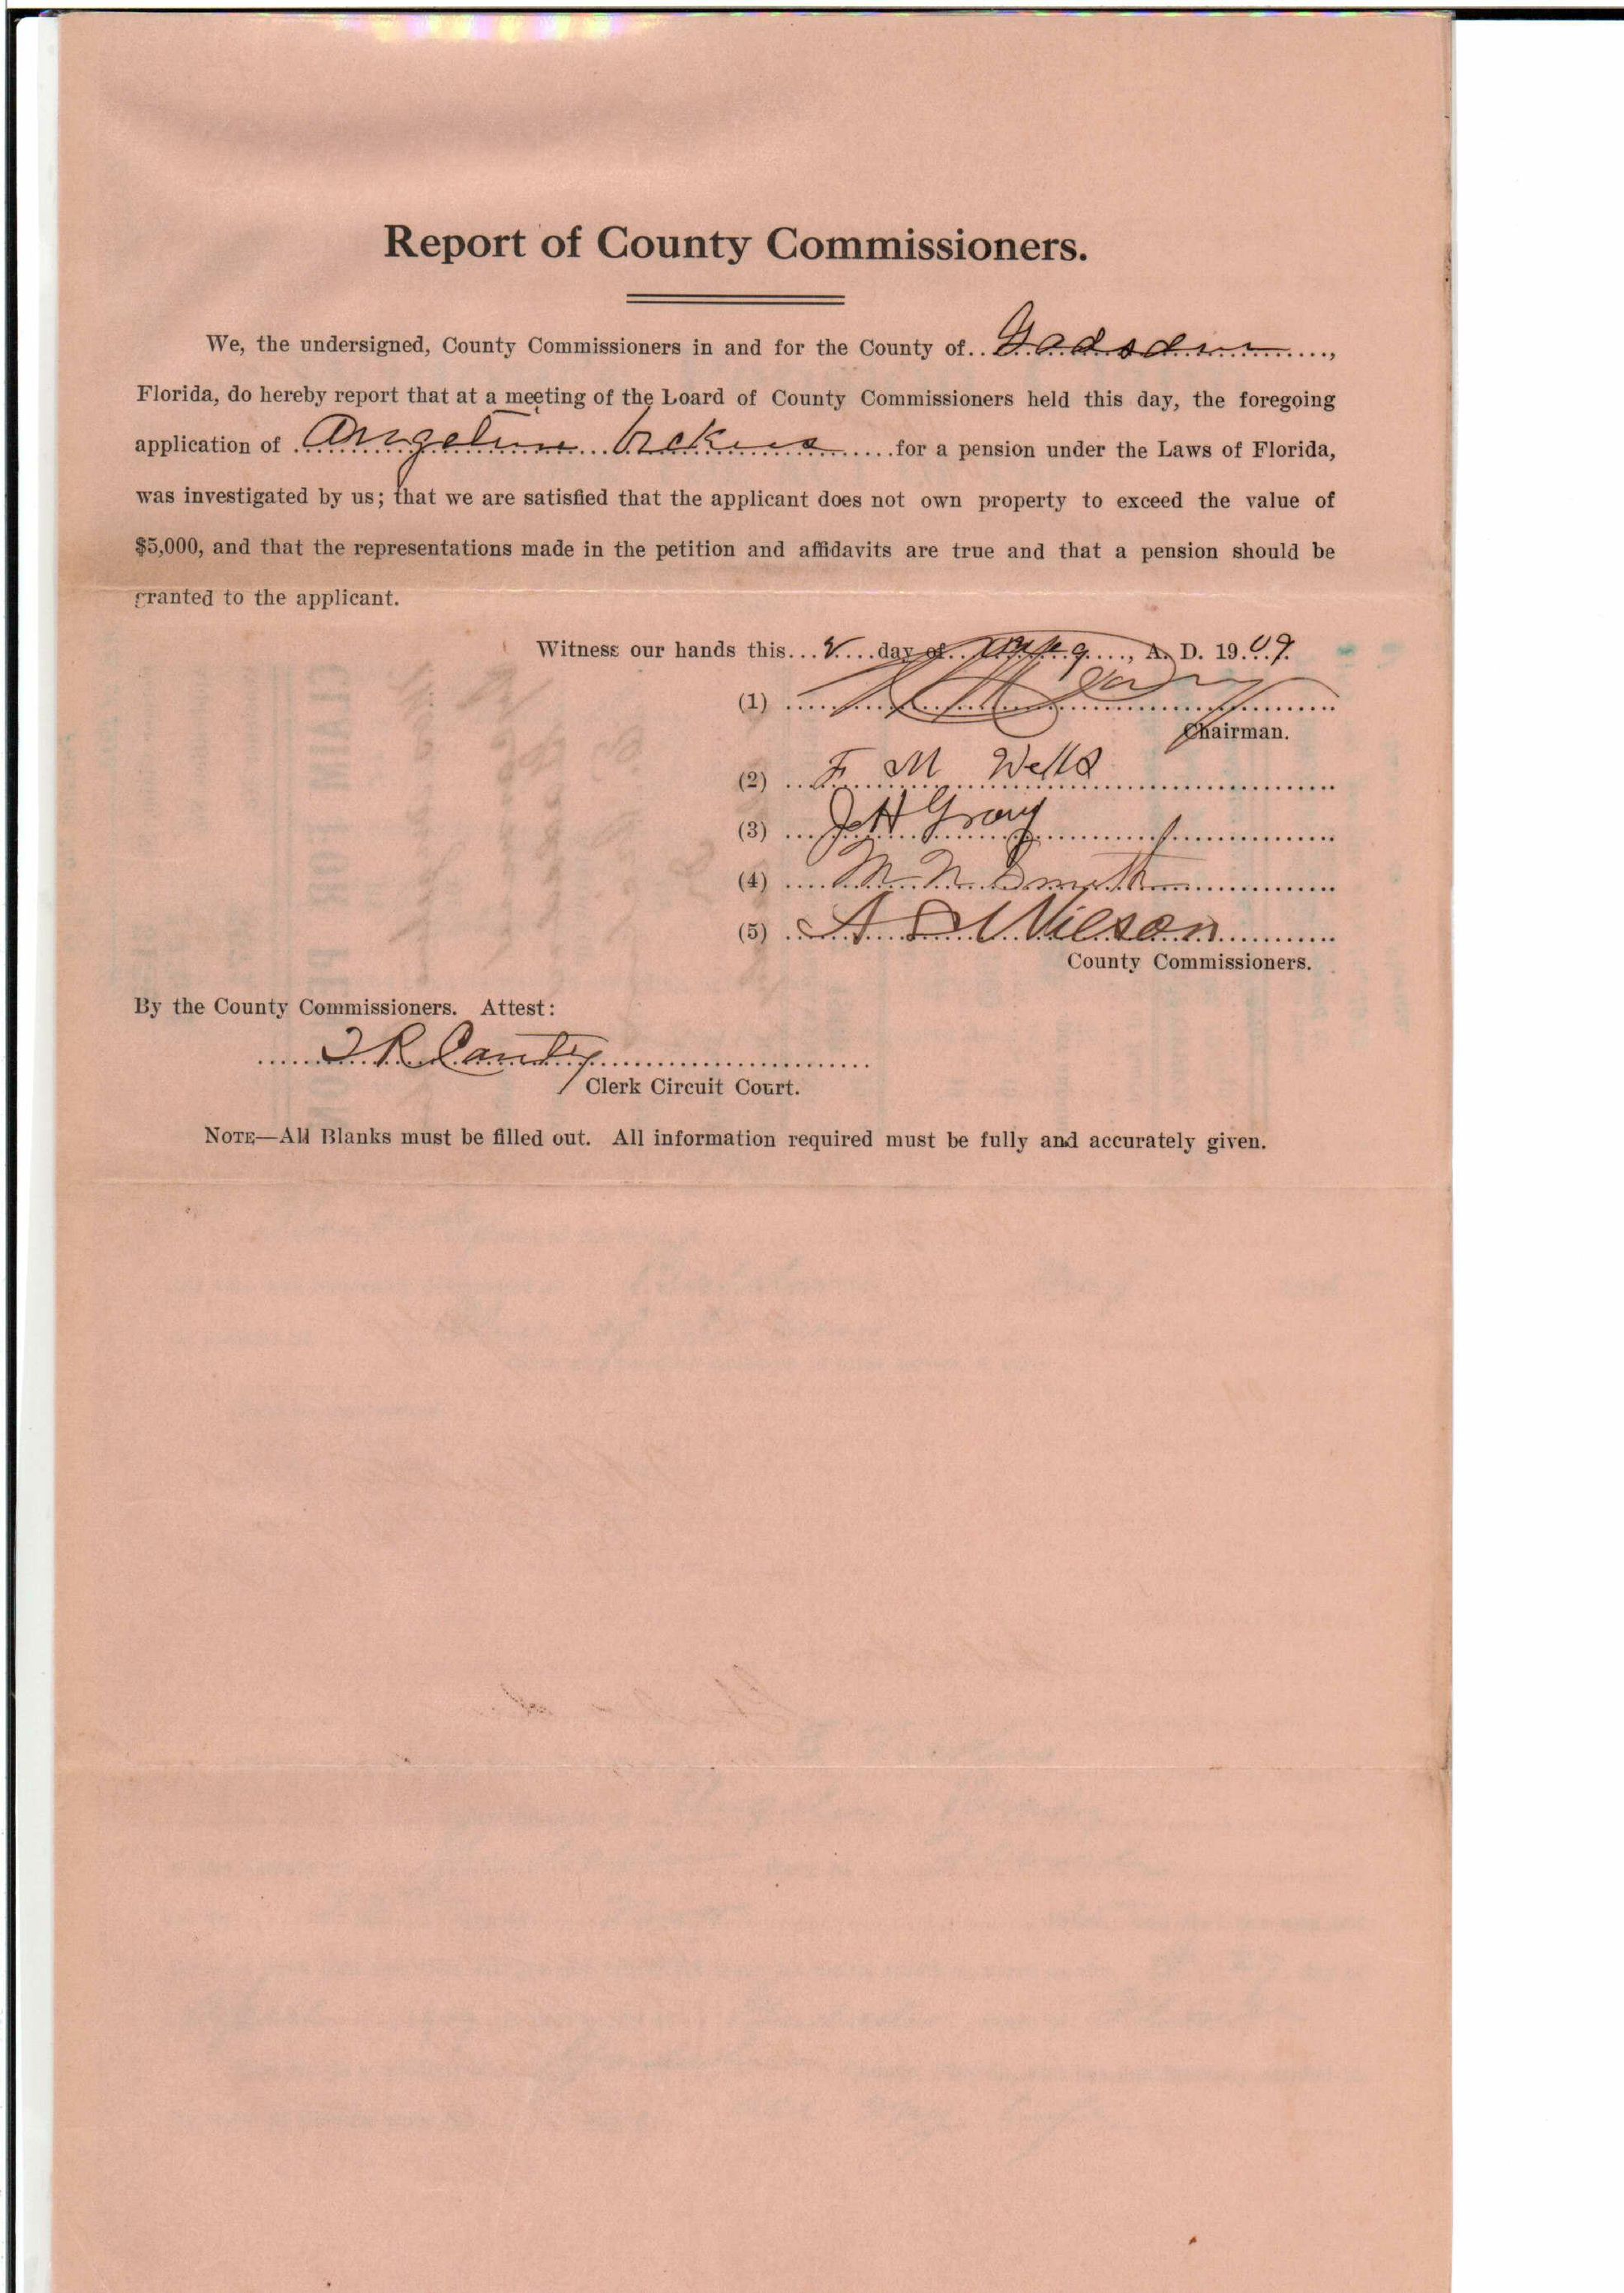 Report of County Commissioners.
We, the undersigned, County Commissioners in and for the County of.. Gadsden ....,
Florida, do hereby report that at a meeting of the Loard of County Commissioners held this day, the foregoing
application of Angeline ..... for a pension under the Laws of Florida,
was investigated by us; that we are satisfied that the applicant does not own property to exceed the value of
$5,000, and that the representations made in the petition and affidavits are true and that a pension should be
granted to the applicant.
Witness our hands this... day of ...., A. D. 1909.
(1)
Chairman.
(2) F M Wells
(3) J H Gray
(4) M. N. Smith
(5) A D Wilson
County Commissioners.
By the County Commissioners. Attest:
Clerk Circuit Court.
NOTE—All Blanks must be filled out. All information required must be fully and accurately given.